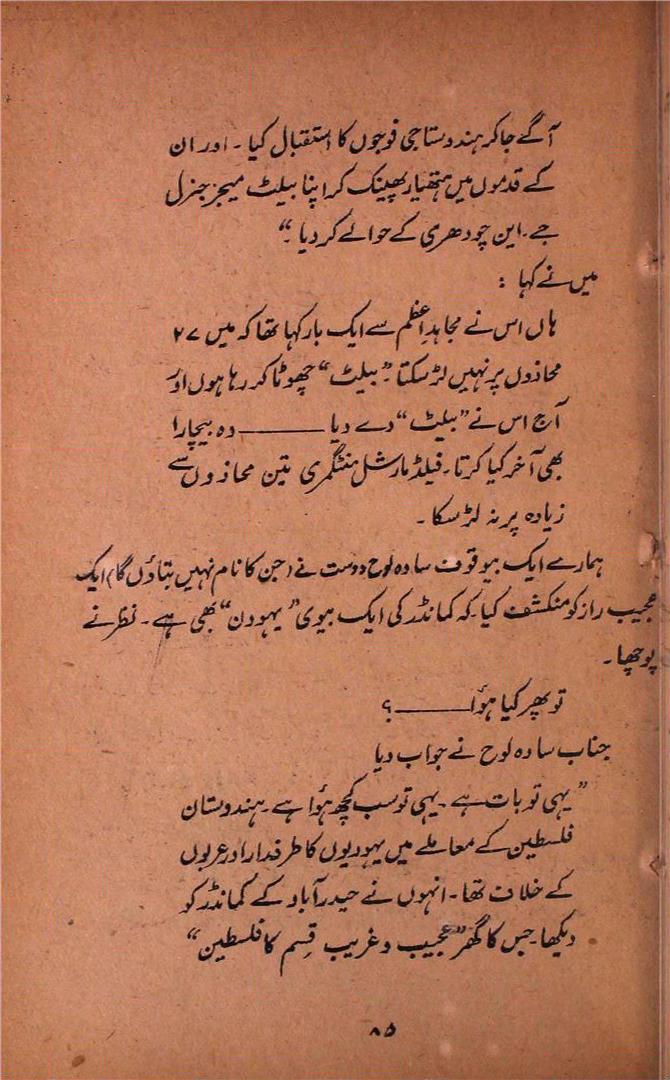 آگے جا کر ہندوستاجی فوجوں کا استقبال کیا ۔ اور ان
کے قدموں میں ہتھیار پھینک کر اپنا بیلٹ میجر جنرل
جے ۔ این چودھری کے حوالے کر دیا ۔“
میں نے کہا :
ہاں اس نے مجاہدِ اعظم سے ایک بار کہا تھا کہ میں ۲۷
محاذوں پر نہیں لڑ سکتا ۔ ”بیلٹ“ چھوٹا کر رہا ہوں اور
آج اس نے ”بیلٹ“ دے دیا ——— وہ بیچارا
بھی آخر کیا کرتا ۔ فیلڈ مارشل منٹگمری تین محاذوں سے
زیادہ پر نہ لڑ سکا ۔
ہمارے ایک بیوقوف سادہ لوح دوست نے (جن کا نام نہیں بتاؤں گا) ایک
عجیب راز کو منکشف کیا ۔ کہ کمانڈر کی ایک بیوی ”یہودن“ بھی ہے ۔ نظر نے
پوچھا ۔
تو پھر کیا ہوُا ——— ؟
جناب سادہ لوح نے جواب دیا
”یہی تو بات ہے ۔ یہی تو سب کچھ ہوُا ہے ۔ ہندوستان
فلسطین کے معاملے میں یہودیوں کا طرفدار اور عربوں
کے خلاف تھا ۔ انہوں نے حیدرآباد کے کمانڈر کو
دیکھا ۔ جس کا گھر ”عجیب و غریب قِسم کا فلسطین“
۸۵